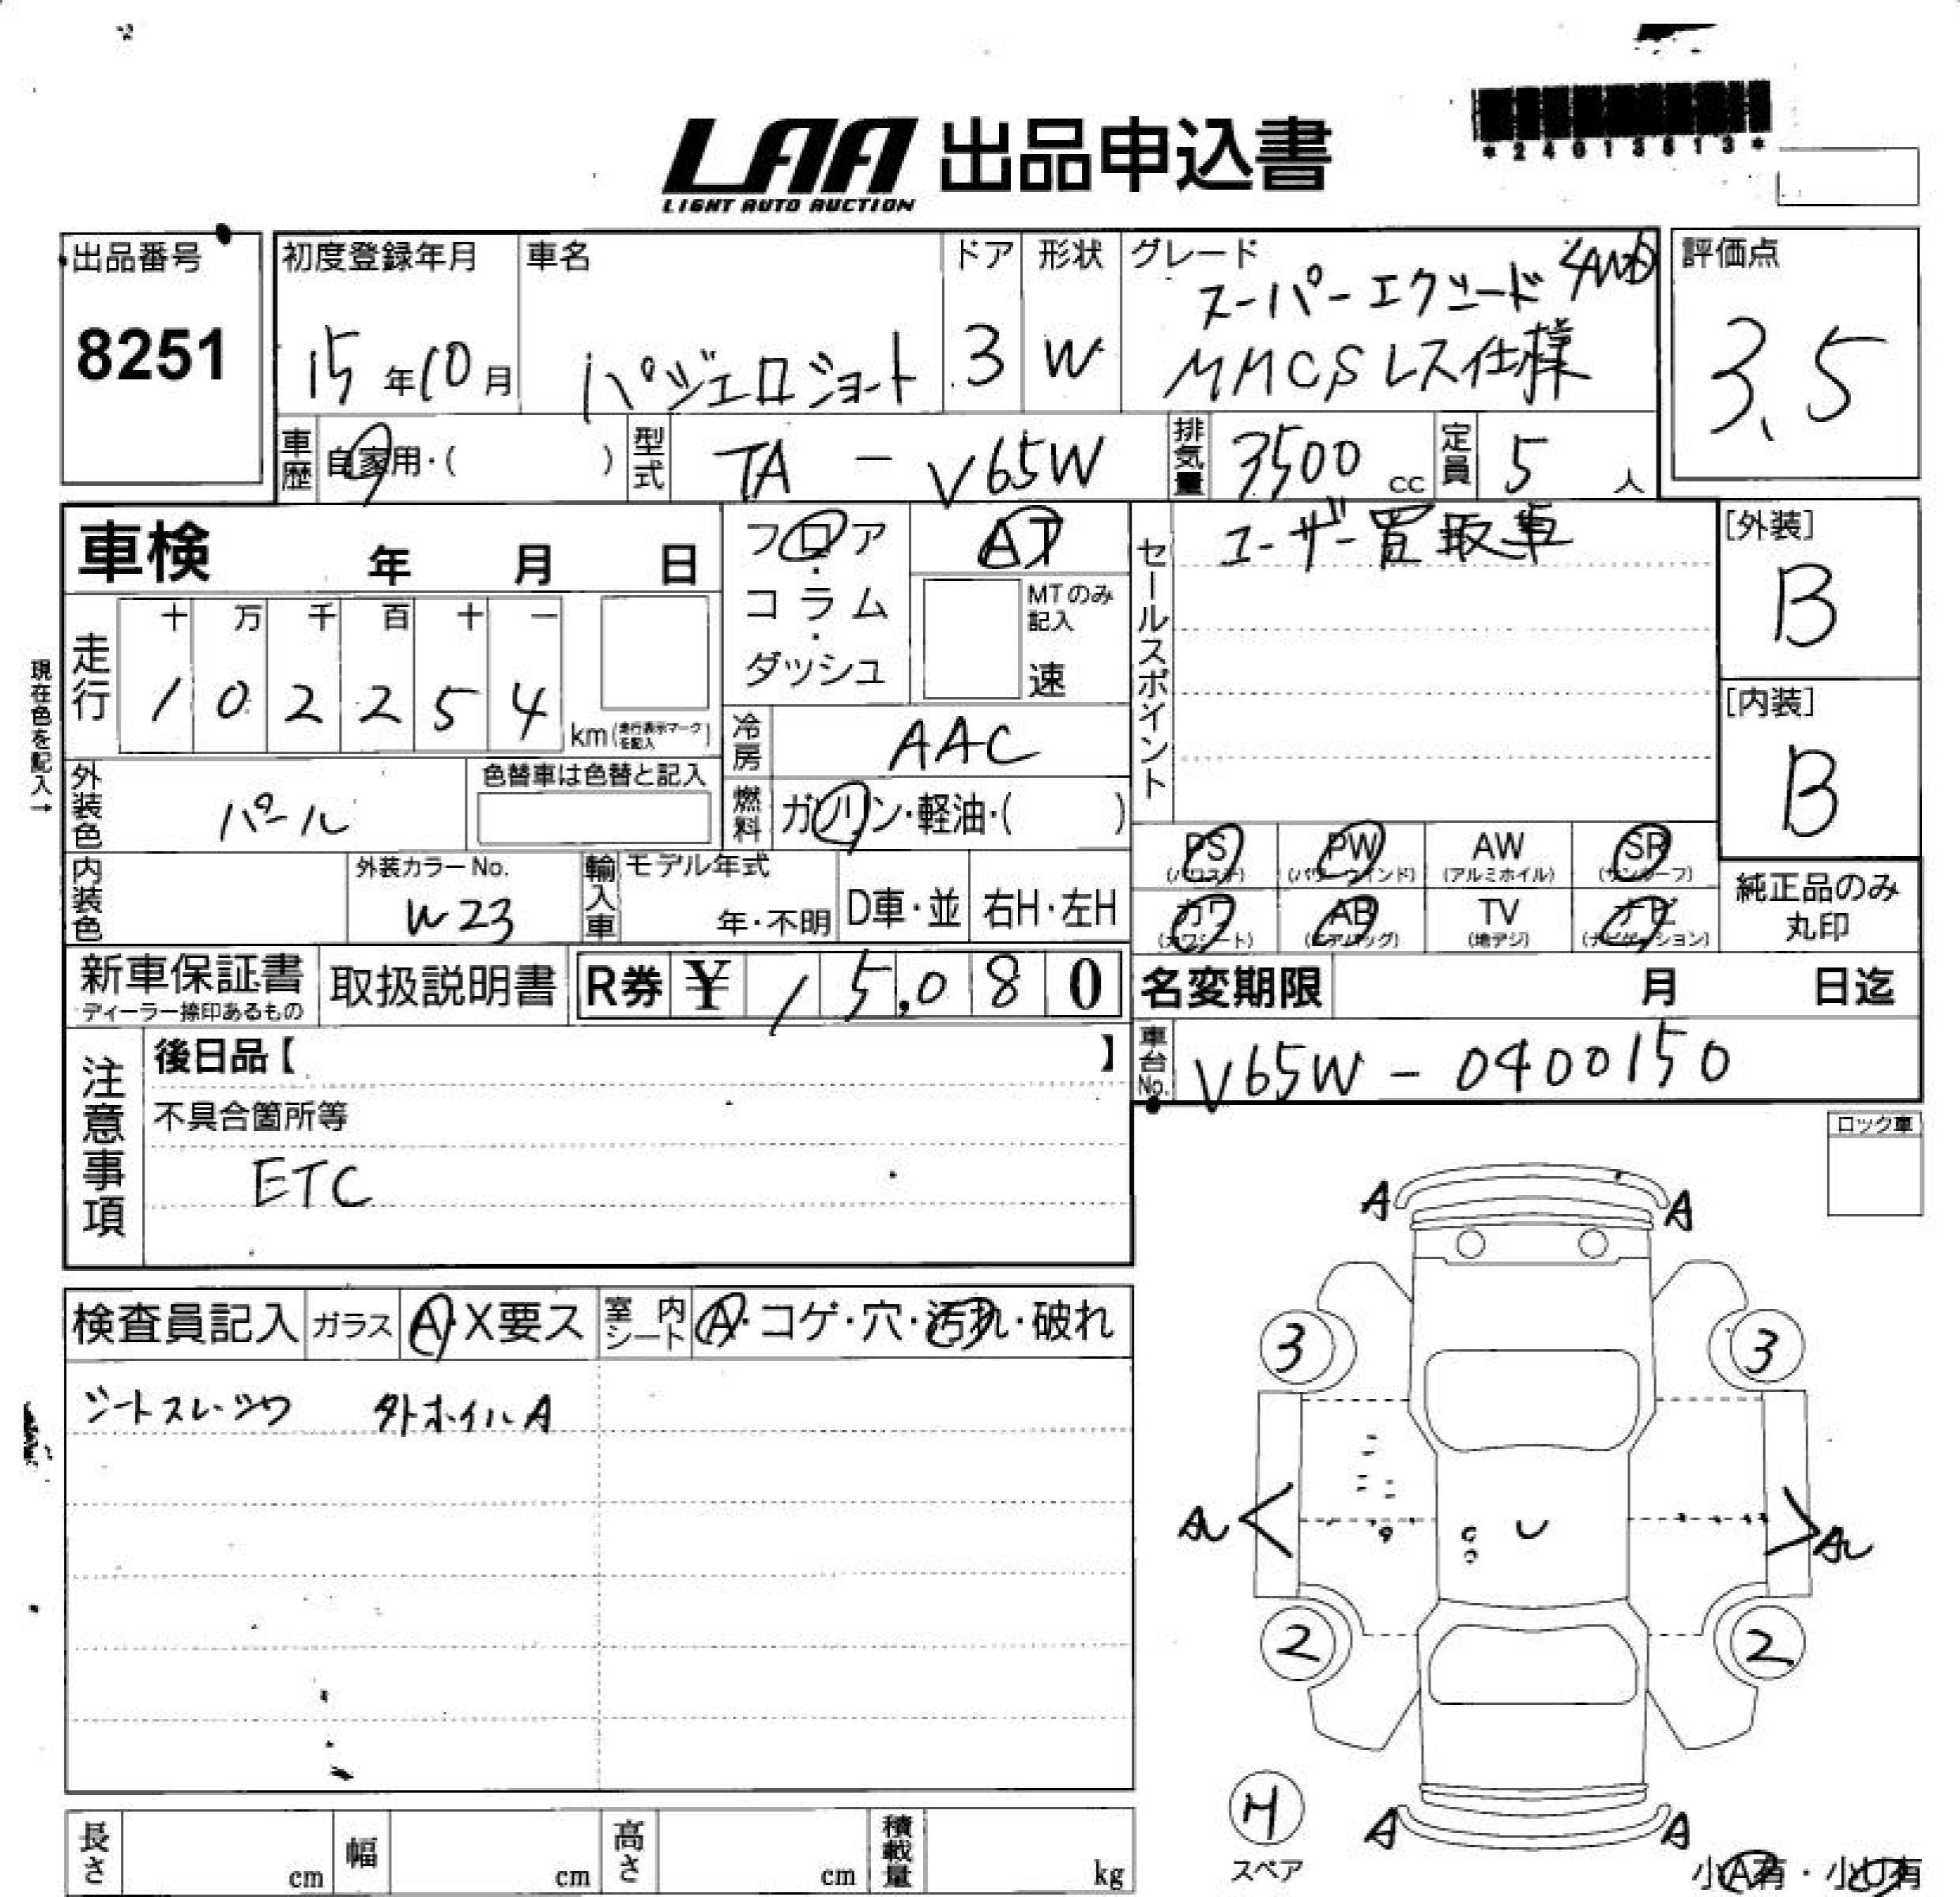 *24013613*
LAA 出品申込書
LIGHT AUTO AUCTION
出品番号
8251
初度登録年月
15年10月
車名
パジェロショート
ドア
3
形状
W
グレード
スーパーエクシード 4WD
MMCSレス仕様
評価点
3.5
車歴
自家用・( )
型式
TA - V65W
排気量
3500 cc
定員
5 人
車検 年 月 日
フロア・コラム・ダッシュ
AT
MTのみ記入
速
セールスポイント
ユーザー買取車
[外装]
B
[内装]
B
現在色を記入→
走行
十 万 千 百 十 一
1 0 2 2 5 4
km(走行表示マークを記入)
冷房
AAC
外装色
パール
色替車は色替と記入
燃料
ガソリン・軽油・( )
PS
(パワステ)
PW
(パワーウインド)
AW
(アルミホイル)
SR
(サンルーフ)
カワ
(カワシート)
AB
(エアバッグ)
TV
(地デジ)
ナビ
(ナビゲーション)
純正品のみ
丸印
内装色
外装カラーNo.
W23
輸入車
モデル年式
年・不明
D車・並
右H・左H
新車保証書
ディーラー捺印あるもの
取扱説明書
R券 ¥ 15,080
名変期限 月 日迄
車台No.
V65W - 0400150
注意事項
後日品【 】
不具合箇所等
ETC
ロック車
検査員記入
ガラス
A・X要ス
室内シート
A・コゲ・穴・汚れ・破れ
シートスレ・シワ 外ホイルA
A A
3 3
2 2
M
スペア
A A
小A有・小U有
長さ cm
幅 cm
高さ cm
積載量 kg